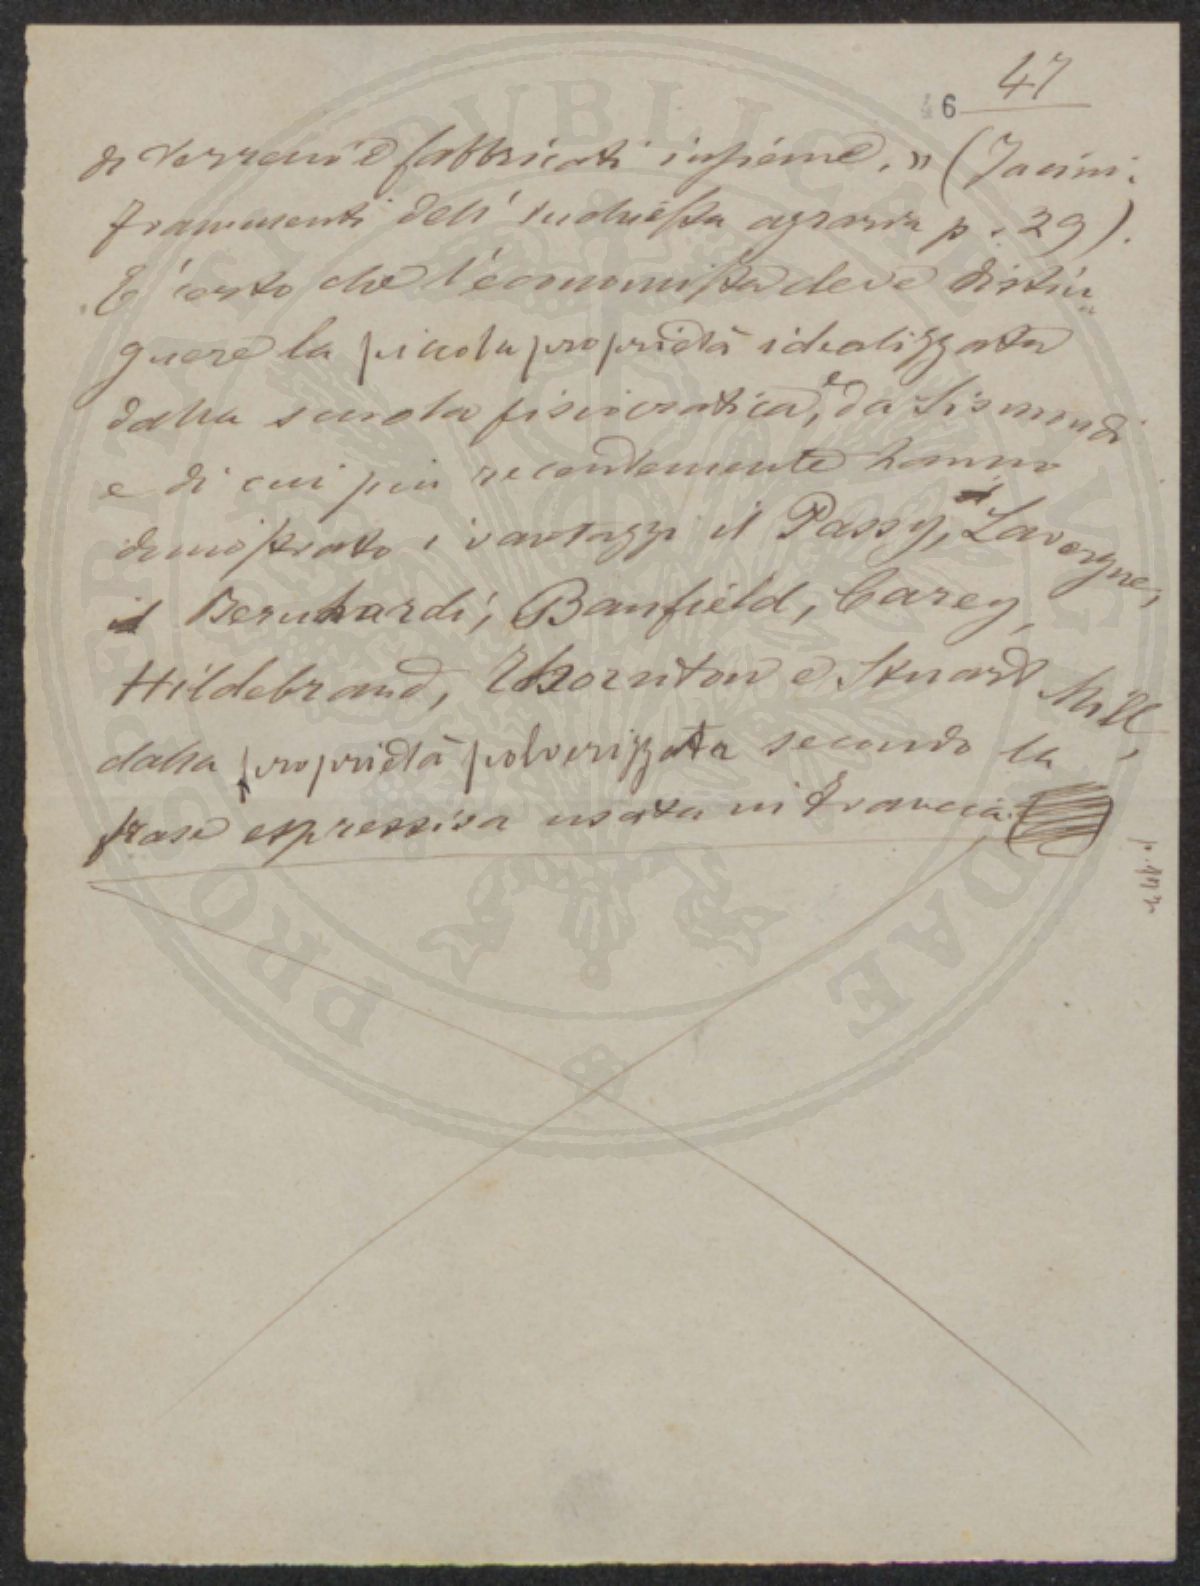 47
46
di terreni e fabbricati insieme. » (Jacini:
frammenti dell'inchiesta agraria p. 29).
E' certo che l'economista deve distin„
guere la piccola proprietà idealizzata
dalla scuola fisiocratica, e da Sismondi
e di cui più recentemente hanno
dimostrato i vantaggi il Passy, Lavergne,
il Bernhardi, Banfield, Carey,
Hildebrand, Thornton e Stuart Mill,
dalla proprietà polverizzata secondo la
frase espressiva usata in Francia.
PRO PVBLICAE